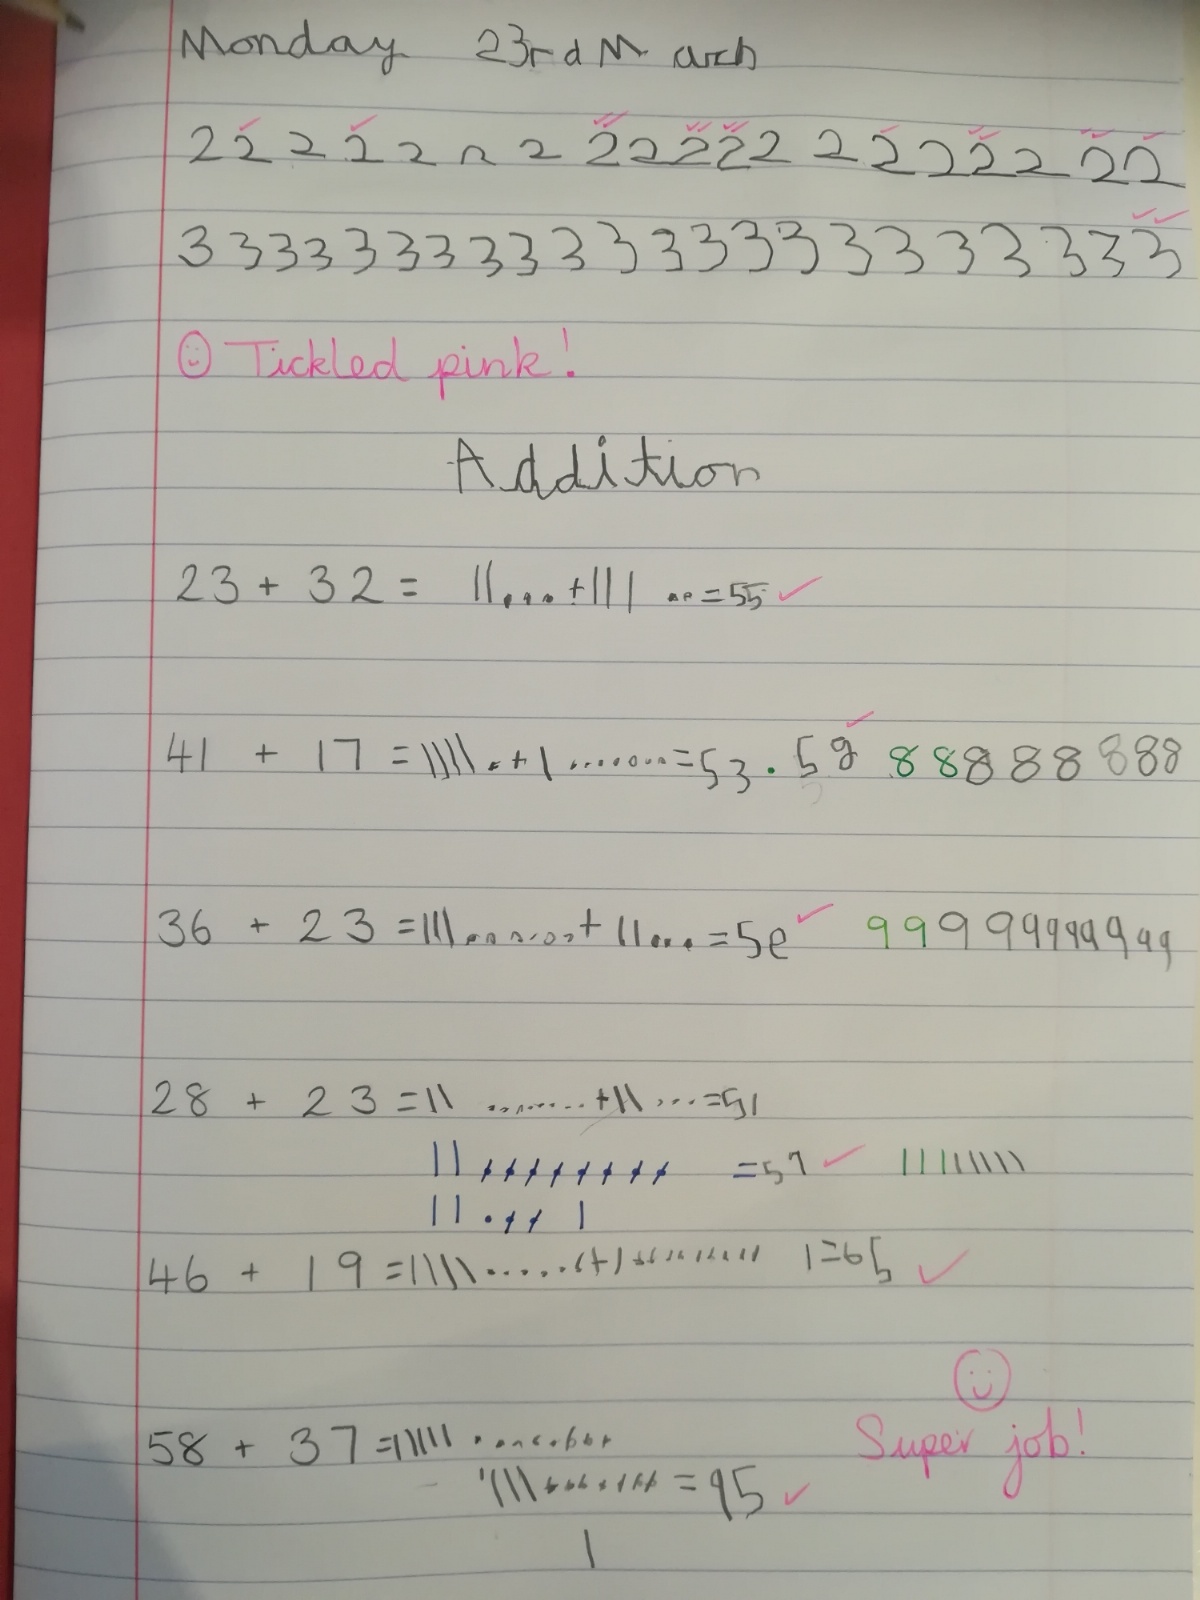 Monday 23rd March
2 2 2 2 2 2 2 2 2 2 2 2 2 2 2 2 2 2 2 2
3 3 3 3 3 3 3 3 3 3 3 3 3 3 3 3 3 3 3 3 3 3
Tickled pink!
Addition
23 + 32 = ||... + ||| .. = 55
41 + 17 = ||||. + | ....... = 53 . 58 8 8 8 8 8 8 8 8
36 + 23 = |||...... + ||... = 59 9 9 9 9 9 9 9 9 9 9 9
28 + 23 = || ........ + || ... = 51
|| ........ = 51 | | | | | | | | |
|| ... |
46 + 19 = |||| ...... + | ......... | = 65
58 + 37 = ||||| ........
||| ....... = 95
|
Super job!